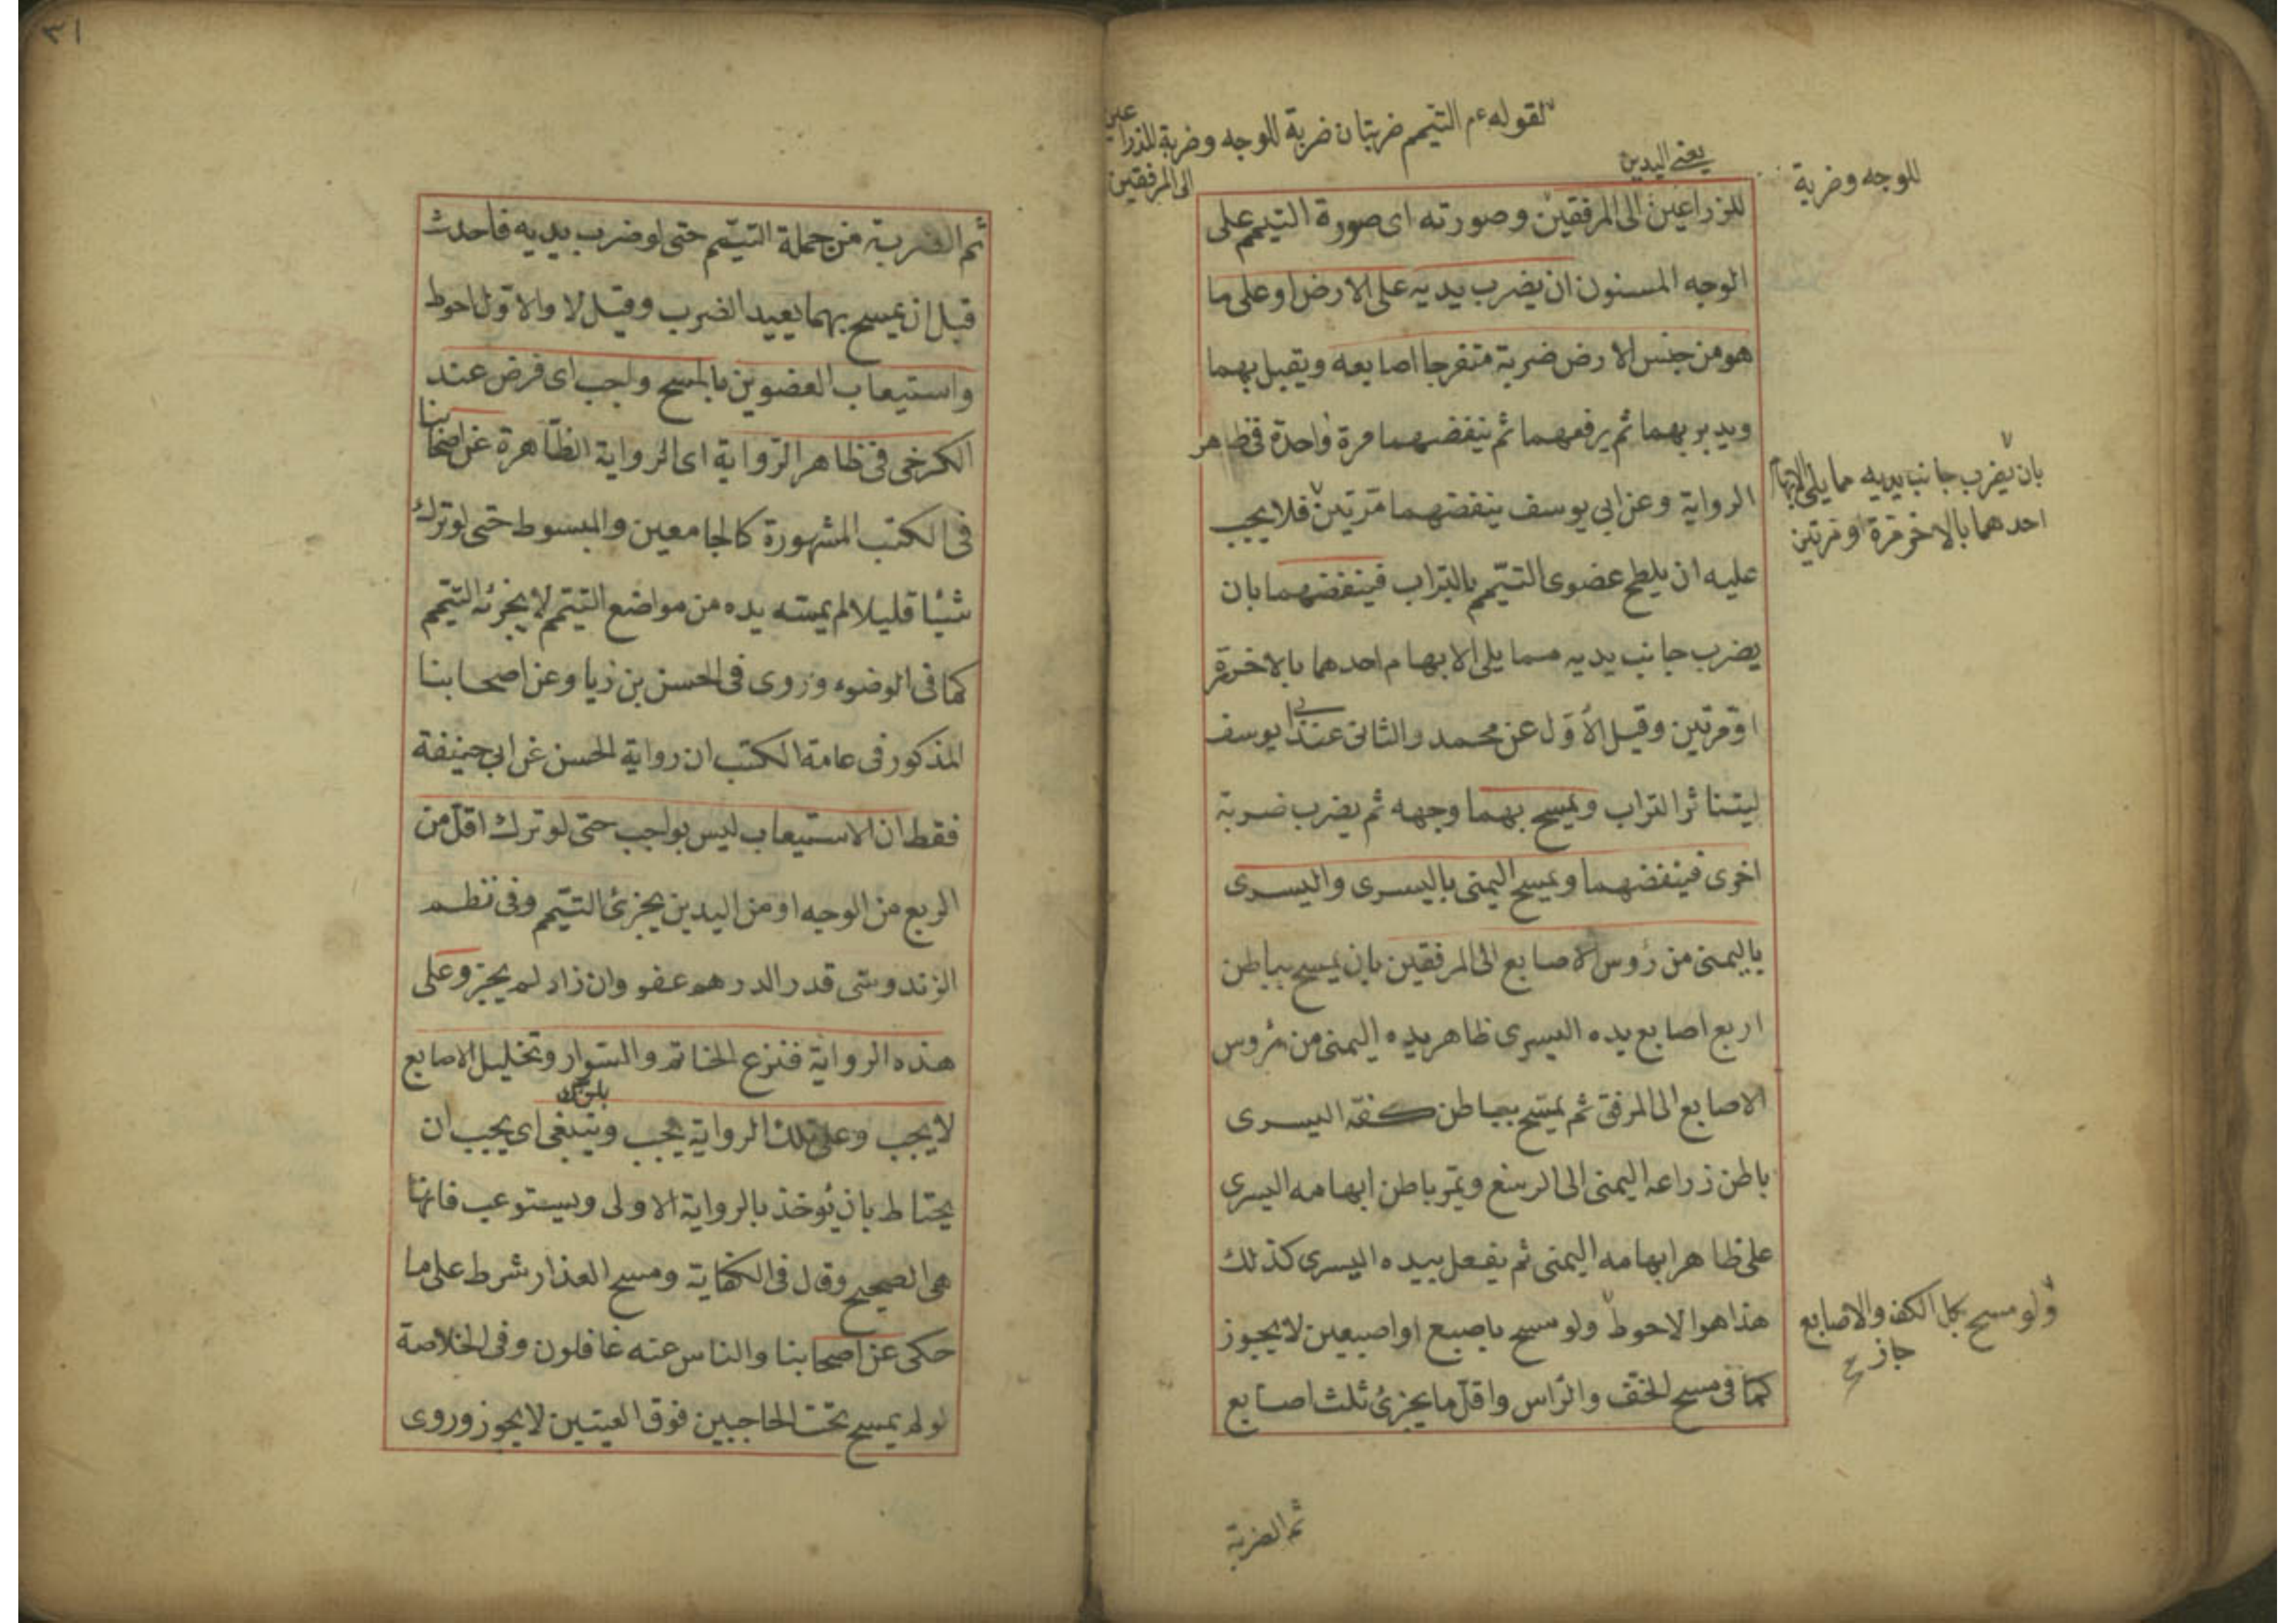 لقوله ءم التيمم ضربتان ضربة للوجه وضربة للذراعين
الى المرفقين
يعنى اليدين
للوجه وضربة
للزراعين الى المرفقين وصورته اى صورة التيمم على
الوجه المسنون ان يضرب يديه على الارض او على ما
هو من جنس الارض ضربة متفرجا اصابعه ويقبل بهما
ويدبر بهما ثم يرفعهما ثم ينفضهما مرة واحدة فى ظاهر
الرواية وعن ابى يوسف ينفضهما مرتين فلا يجب
عليه ان يلطح عضوى التيمم بالتراب فينفضهما بان
يضرب جانب يديه مما يلى الابهام احدهما بالاخر مرة
او مرتين وقيل الاول عن محمد والثانى عند ابى يوسف
ليتناثر التراب ويمسح بهما وجهه ثم يضرب ضربة
اخرى فينفضهما ويمسح اليمنى باليسرى واليسرى
باليمنى من رؤس الاصابع الى المرفقين بان يمسح بباطن
اربع اصابع يده اليسرى ظاهر يده اليمنى من رؤس
الاصابع الى المرفق ثم يمسح بباطن كفه اليسرى
باطن زراعه اليمنى الى الرسغ ويمر باطن ابهامه اليسرى
على ظاهر ابهامه اليمنى ثم يفعل بيده اليسرى كذلك
هذا هو الاحوط ولو مسح باصبع او اصبعين لا يجوز
كما فى مسح الخف والراس واقل ما يجزئ ثلث اصابع
بان يضرب جانب يديه مما يلى الابهام
احدهما بالاخر مرة او مرتين
ولو مسح بكل الكف والاصابع
جاز
ثم الضربة
٣١
ثم الضربة من جملة التيمم حتى لو ضرب يديه فاحدث
قبل ان يمسح بهما يعيد الضرب وقيل لا والاول احوط
واستيعاب العضوين بالمسح واجب اى فرض عند
الكرخى فى ظاهر الرواية اى الرواية الظاهرة عن اصحابنا
فى الكتب المشهورة كالجامعين والمبسوط حتى لو ترك
شيئا قليلا لم يمسه يده من مواضع التيمم لا يجزئه التيمم
كما فى الوضوء وروى فى الحسن بن زيا وعن اصحابنا
المذكور فى عامة الكتب ان رواية الحسن عن ابى حنيفة
فقط ان الاستيعاب ليس بواجب حتى لو ترك اقل من
الربع من الوجه او من اليدين يجزئ التيمم وفى نظم
الزندوستى قدر الدرهم عفو وان زاد لم يجز وعلى
هذه الرواية فنزع الخاتم والسوار وتخليل الاصابع
لا يجب وعلى تلك الرواية يجب وينبغى اى يجب ان
يحتاط بان يؤخذ بالرواية الاولى ويستوعب فانها
هى الصحيح وقال فى الكفاية ومسح العذار شرط على ما
حكى عن اصحابنا والناس عنه غافلون وفى الخلاصة
لو لم يمسح تحت الحاجبين فوق العينين لا يجوز وروى